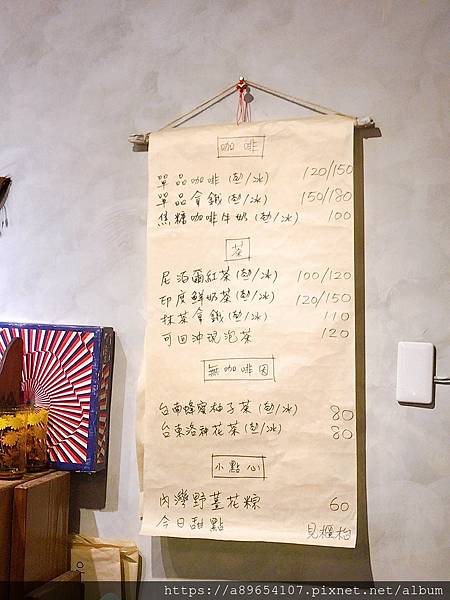 咖啡
單品咖啡(熱/冰) 120/150
單品拿鐵(熱/冰) 150/180
焦糖咖啡牛奶(熱/冰) 100
茶
尼泊爾紅茶(熱/冰) 100/120
印度鮮奶茶(熱/冰) 120/150
抹茶拿鐵(熱/冰) 110
可回沖現泡茶 120
無咖啡因
台南蜂蜜柚子茶(熱/冰) 80
台東洛神花茶(熱/冰) 80
小點心
內灣野薑花粽 60
今日甜點 見櫃枱
https://a89654107.pixnet.net/album